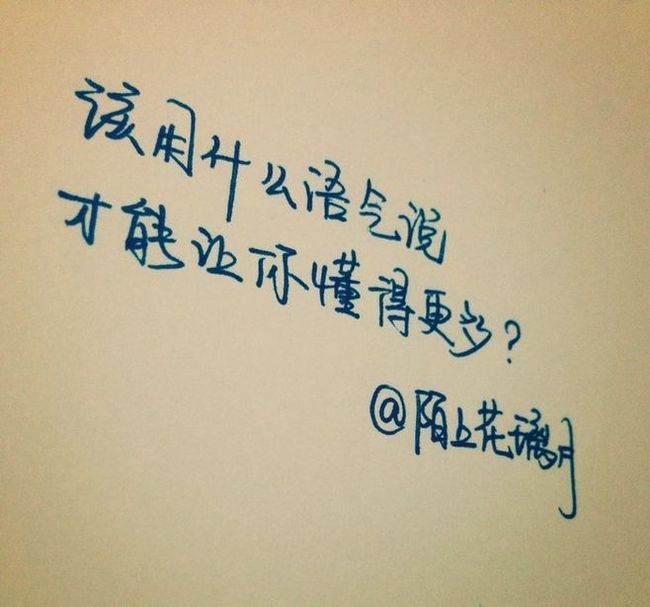 该用什么语气说
才能让你懂得更多?
@陌上花璃月